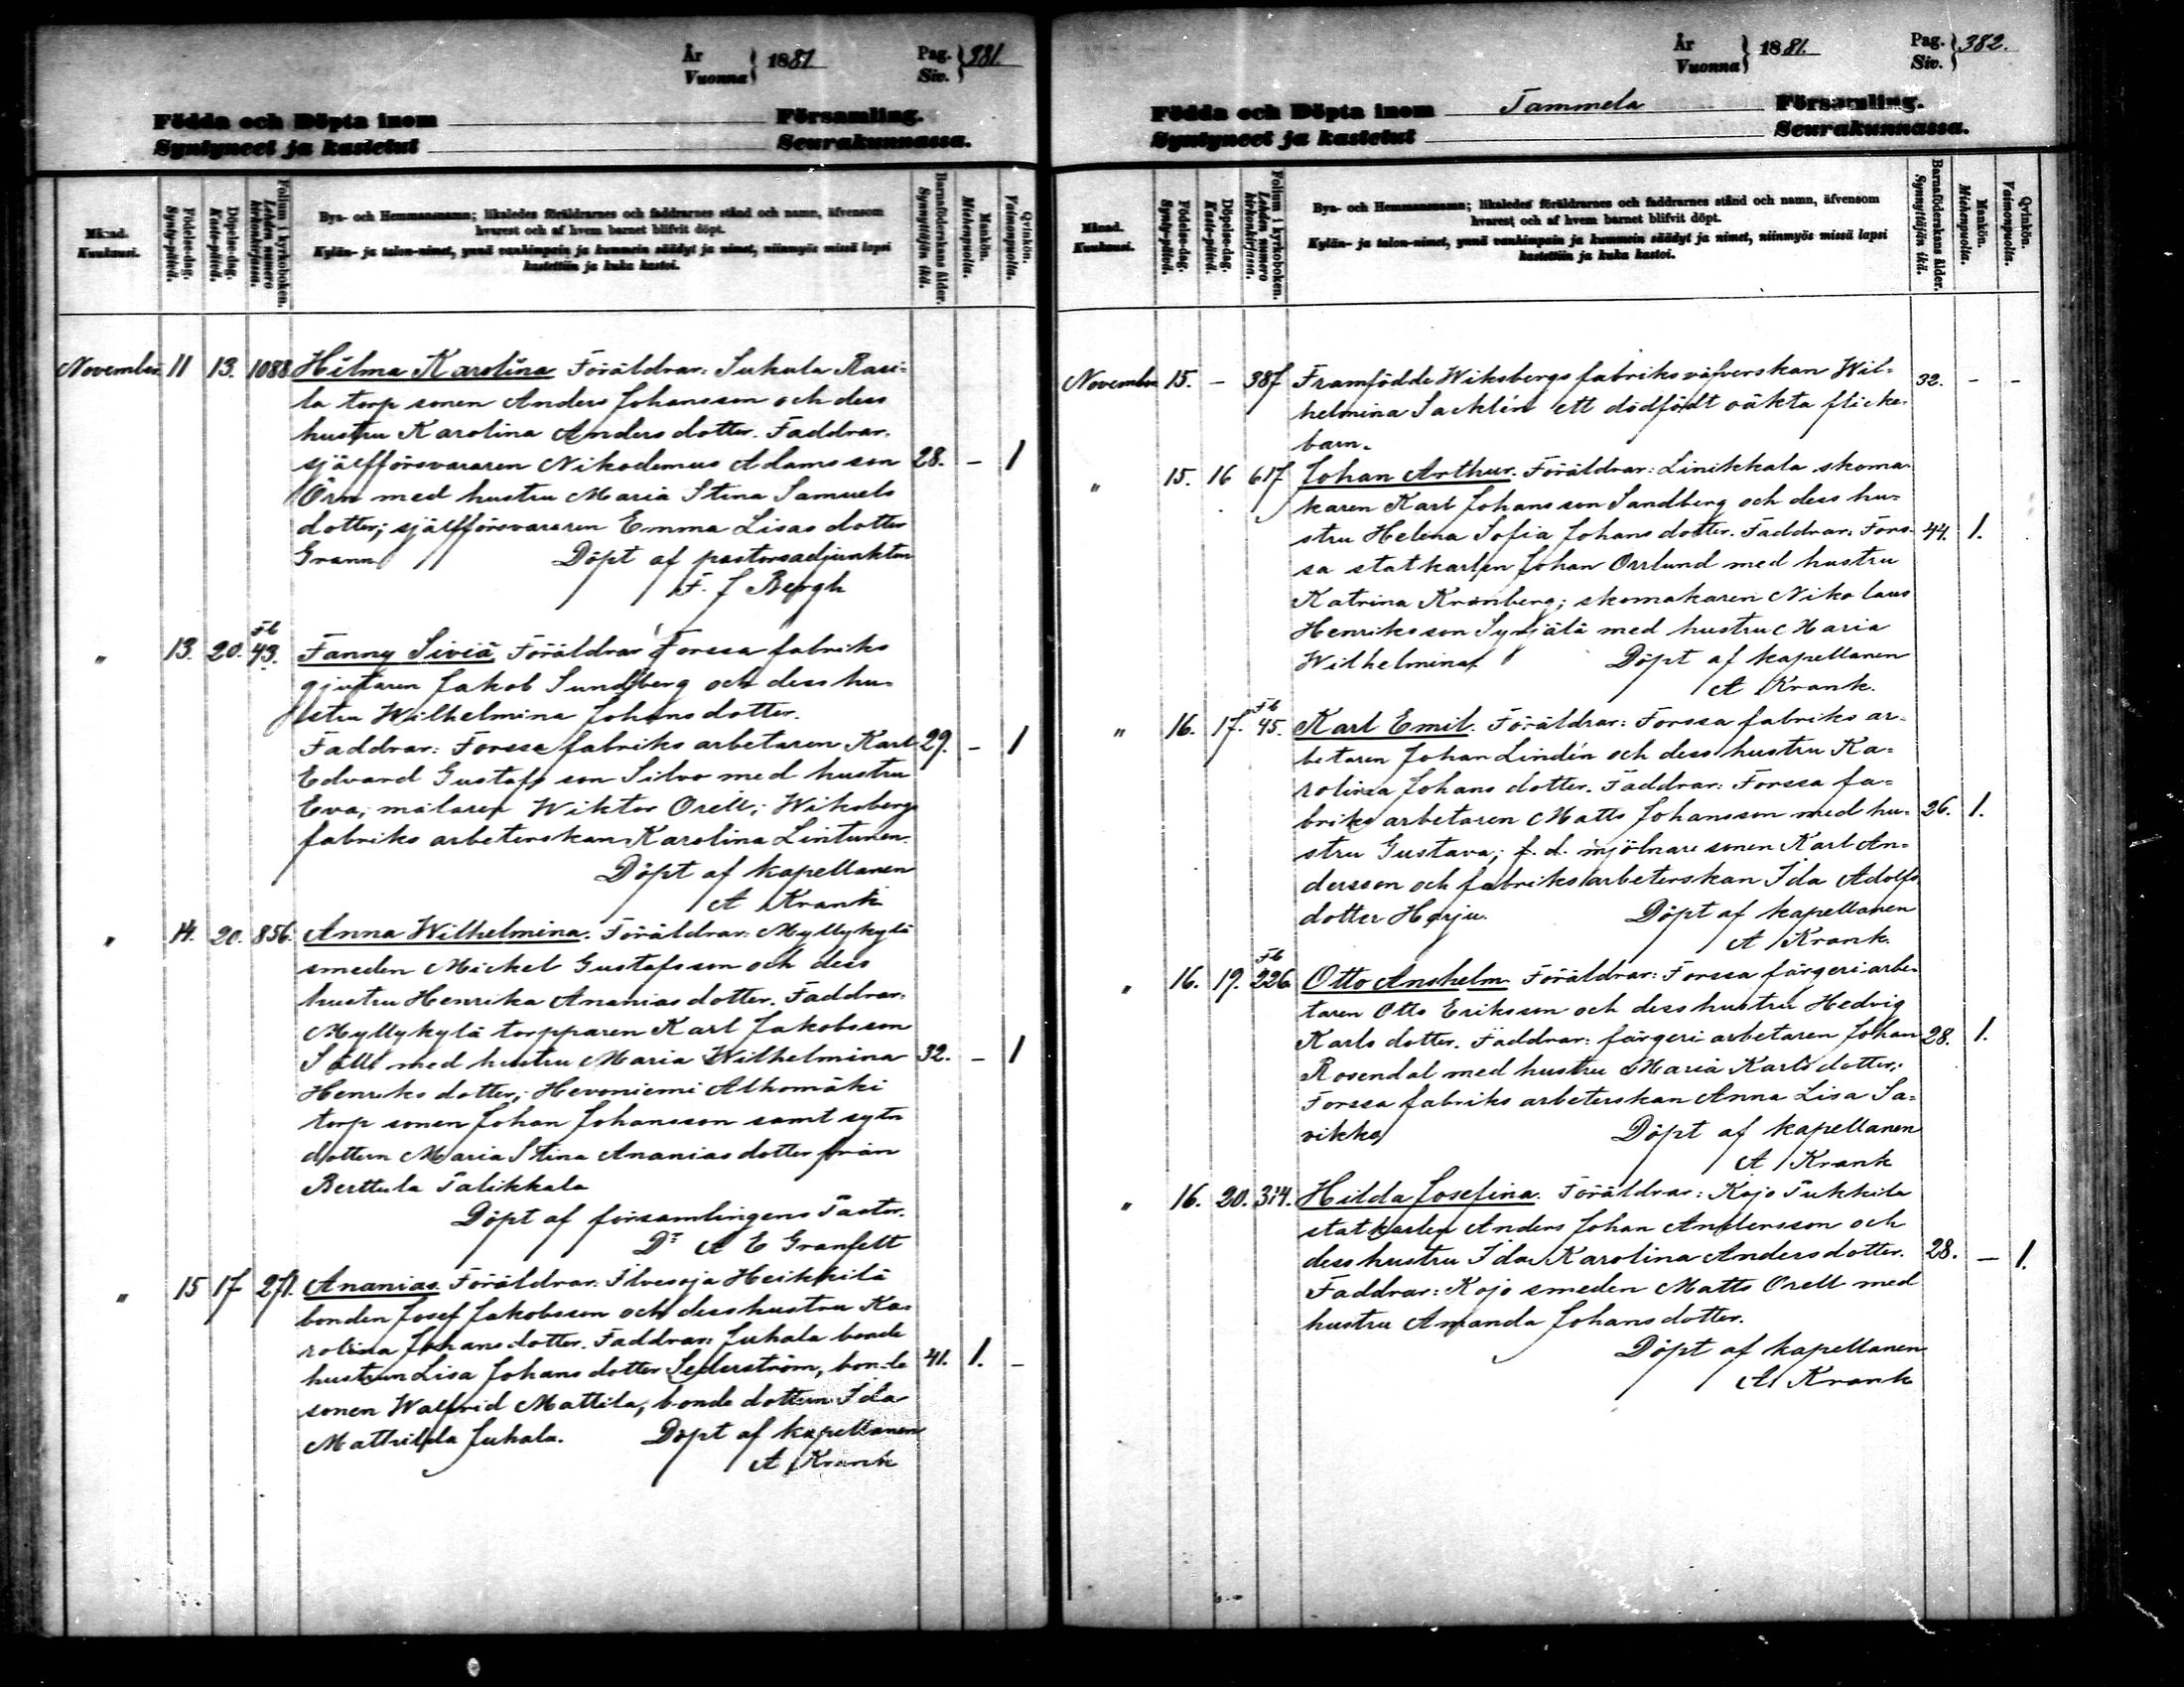 År
Vuonna } 1881
Pag.
Siv. } 381.
Födda och Döpta inom Församling.
Syntyneet ja kastetut Seurakunnassa.
Månad.
Kuukausi.
Födelse-dag.
Synty-päivä.
Döpelse-dag.
Kaste-päivä.
Folium i kyrkoboken.
Lehden numero kirkonkirjassa.
Bya- och Hemmansnamn; likaledes föräldrarnes och faddrarnes stånd och namn, äfvensom
hvarest och af hvem barnet blifvit döpt.
Kylän- ja talon-nimet, ynnä vanhimpain ja kummein säädyt ja nimet, niinmyös missä lapsi
kastettiin ja kuka kastoi.
Barnaföderskans ålder.
Synnyttäjän ikä.
Mankön.
Miehenpuolia.
Qvinkön.
Vaimonpuolia.
November 11 13. 1088 Hilma Karolina Föräldrar: Sukula Rasi-
la torp sonen Anders Johansson och dess
hustru Karolina Anders dotter. Faddrar:
sjelfförsvararen Nikodemus Adamsson 28. – 1
Örn med hustru Maria Stina Samuels
dotter; sjelfförsvararen Emma Lisas dotter
Grann Döpt af pastorsadjunkten
F. J Bergh
" 13. 20. Fb 43. Fanny Siviä Föräldrar Forssa fabriks
gjutaren Jakob Sundberg och dess hu-
stru Wilhelmina Johans dotter.
Faddrar: Forssa fabriks arbetaren Karl 29. – 1
Edvard Gustafs son Silvo med hustru
Eva; målaren Wiktor Orell; Wiksbergs
fabriks arbeterskan Karolina Lintunen.
Döpt af kapellanen
A Krank
" 14. 20. 856. Anna Wilhelmina. Föräldrar: Myllykylä
smeden Mickel Gustafsson och dess
hustru Henrika Ananias dotter. Faddrar:
Myllykylä torpparen Karl Jakobsson
Säll med hustru Maria Wilhelmina 32. – 1
Henriks dotter; Hevoniemi Alhomäki
torp sonen Johan Johansson samt sytn
dottern Maria Stina Ananias dotter från
Berttula Talikkala
Döpt af församlingens Pastor.
Dr A E Granfelt
" 15 17 271. Ananias. Föräldrar: Ilvesoja Heikkilä
bonden Josef Jakobsson och dess hustru Ka-
rolina Johans dotter. Faddrar: Juhala bonde
hustrun Lisa Johans dotter Lederström, bonde 41. 1. –
sonen Walfrid Mattila, bonde dottern Ida
Mathilda Juhala. Döpt af kapellanen
A Krank
År
Vuonna } 1881.
Pag.
Siv. } 382.
Födda och Döpta inom Tammela Församling.
Syntyneet ja kastetut Seurakunnassa.
Månad.
Kuukausi.
Födelse-dag.
Synty-päivä.
Döpelse-dag.
Kaste-päivä.
Folium i kyrkoboken.
Lehden numero kirkonkirjassa.
Bya- och Hemmansnamn; likaledes föräldrarnes och faddrarnes stånd och namn, äfvensom
hvarest och af hvem barnet blifvit döpt.
Kylän- ja talon-nimet, ynnä vanhimpain ja kummein säädyt ja nimet, niinmyös missä lapsi
kastettiin ja kuka kastoi.
Barnaföderskans ålder.
Synnyttäjän ikä.
Mankön.
Miehenpuolia.
Qvinkön.
Vaimonpuolia.
November 15. – 387 Framfödde Wiksbergs fabriks väfverskan Wil- 32. – –
helmina Sacklén ett dödfödt oäkta flicke-
barn.
" 15. 16 617 Johan Arthur. Föräldrar: Linikkala skoma-
karen Karl Johansson Sandberg och dess hu-
stru Helena Sofia Johans dotter. Faddrar: Fors- 44. 1.
sa statkarlen Johan Orrlund med hustru
Katrina Kronberg; skomakaren Niko laus
Henriksson Syrjälä med hustru Maria
Wilhelmina Döpt af kapellanen
A Krank.
" 16. 17. Fb 45. Karl Emil. Föräldrar: Forssa fabriks ar-
betaren Johan Lindén och dess hustru Ka-
rolina Johans dotter. Faddrar: Forssa fa-
briks arbetaren Matts Johansson med hu- 26. 1.
stru Gustava; f. d. mjölnare sonen Karl An-
dersson och fabriks arbeterskan Ida Adolfs
dotter Harju. Döpt af kapellanen
A Krank.
" 16. 19. Fb 226. Otto Anshelm. Föräldrar: Forssa färgeri arbe-
taren Otto Eriksson och dess hustru Hedvig
Karls dotter. Faddrar: färgeri arbetaren Johan 28. 1.
Rosendal med hustru Maria Karls dotter;
Forssa fabriks arbeterskan Anna Lisa Sa-
vikko Döpt af kapellanen
A Krank
" 16. 20. 314. Hilda Josefina. Föräldrar: Kojo Tukkila
statkarlen Anders Johan Andersson och
dess hustru Ida Karolina Anders dotter. 28. – 1.
Faddrar: Kojo smeden Matts Orell med
hustru Amanda Johans dotter.
Döpt af kapellanen
A Krank